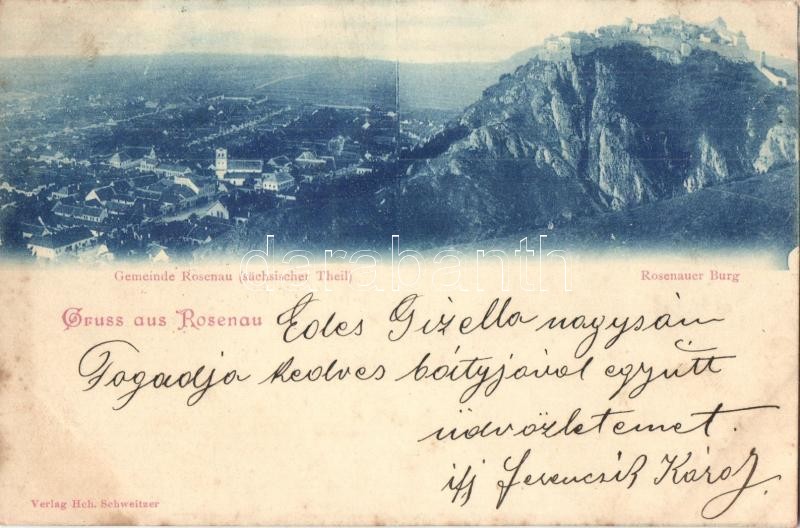 Gemeinde Rosenau (sächsischer Theil)
Rosenauer Burg
darabanth
Gruss aus Rosenau
Edes Gizella nagysám
Fogadja kedves bátyjával együtt
üdvözletemet.
ifj Ferencsik Károly.
Verlag Hch. Schweitzer